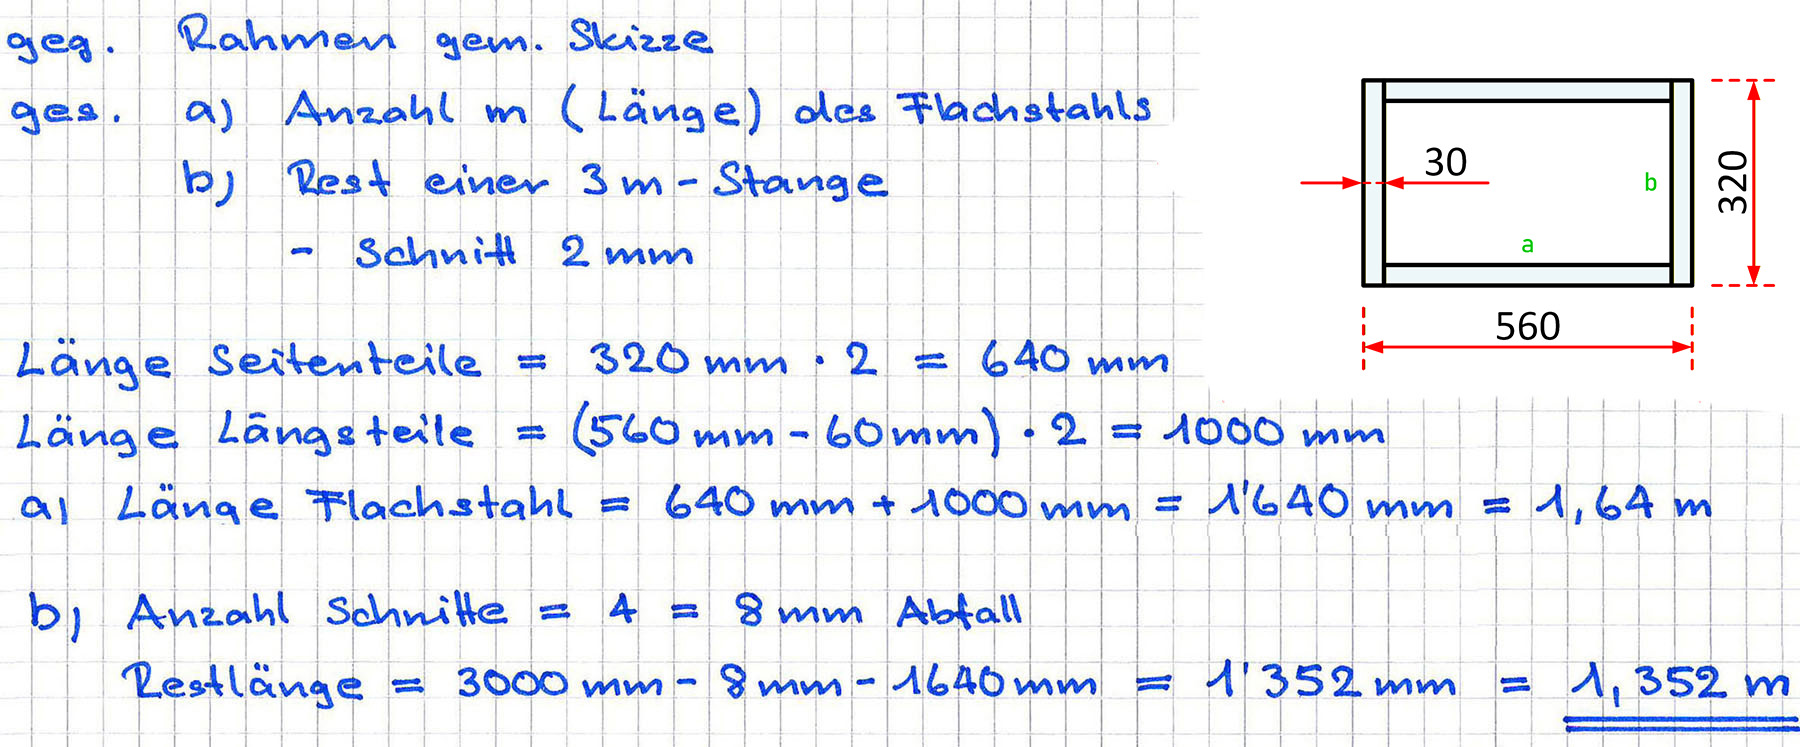 geg. Rahmen gem. Skizze
ges. a) Anzahl m (Länge) des Flachstahls
b) Rest einer 3m-Stange
- Schnitt 2mm
30
b
a
320
560
Länge Seitenteile = 320mm · 2 = 640mm
Länge Längsteile = (560mm - 60mm) · 2 = 1000mm
a) Länge Flachstahl = 640mm + 1000mm = 1'640mm = 1,64 m
b) Anzahl Schnitte = 4 = 8mm Abfall
Restlänge = 3000mm - 8mm - 1640mm = 1'352mm = 1,352 m